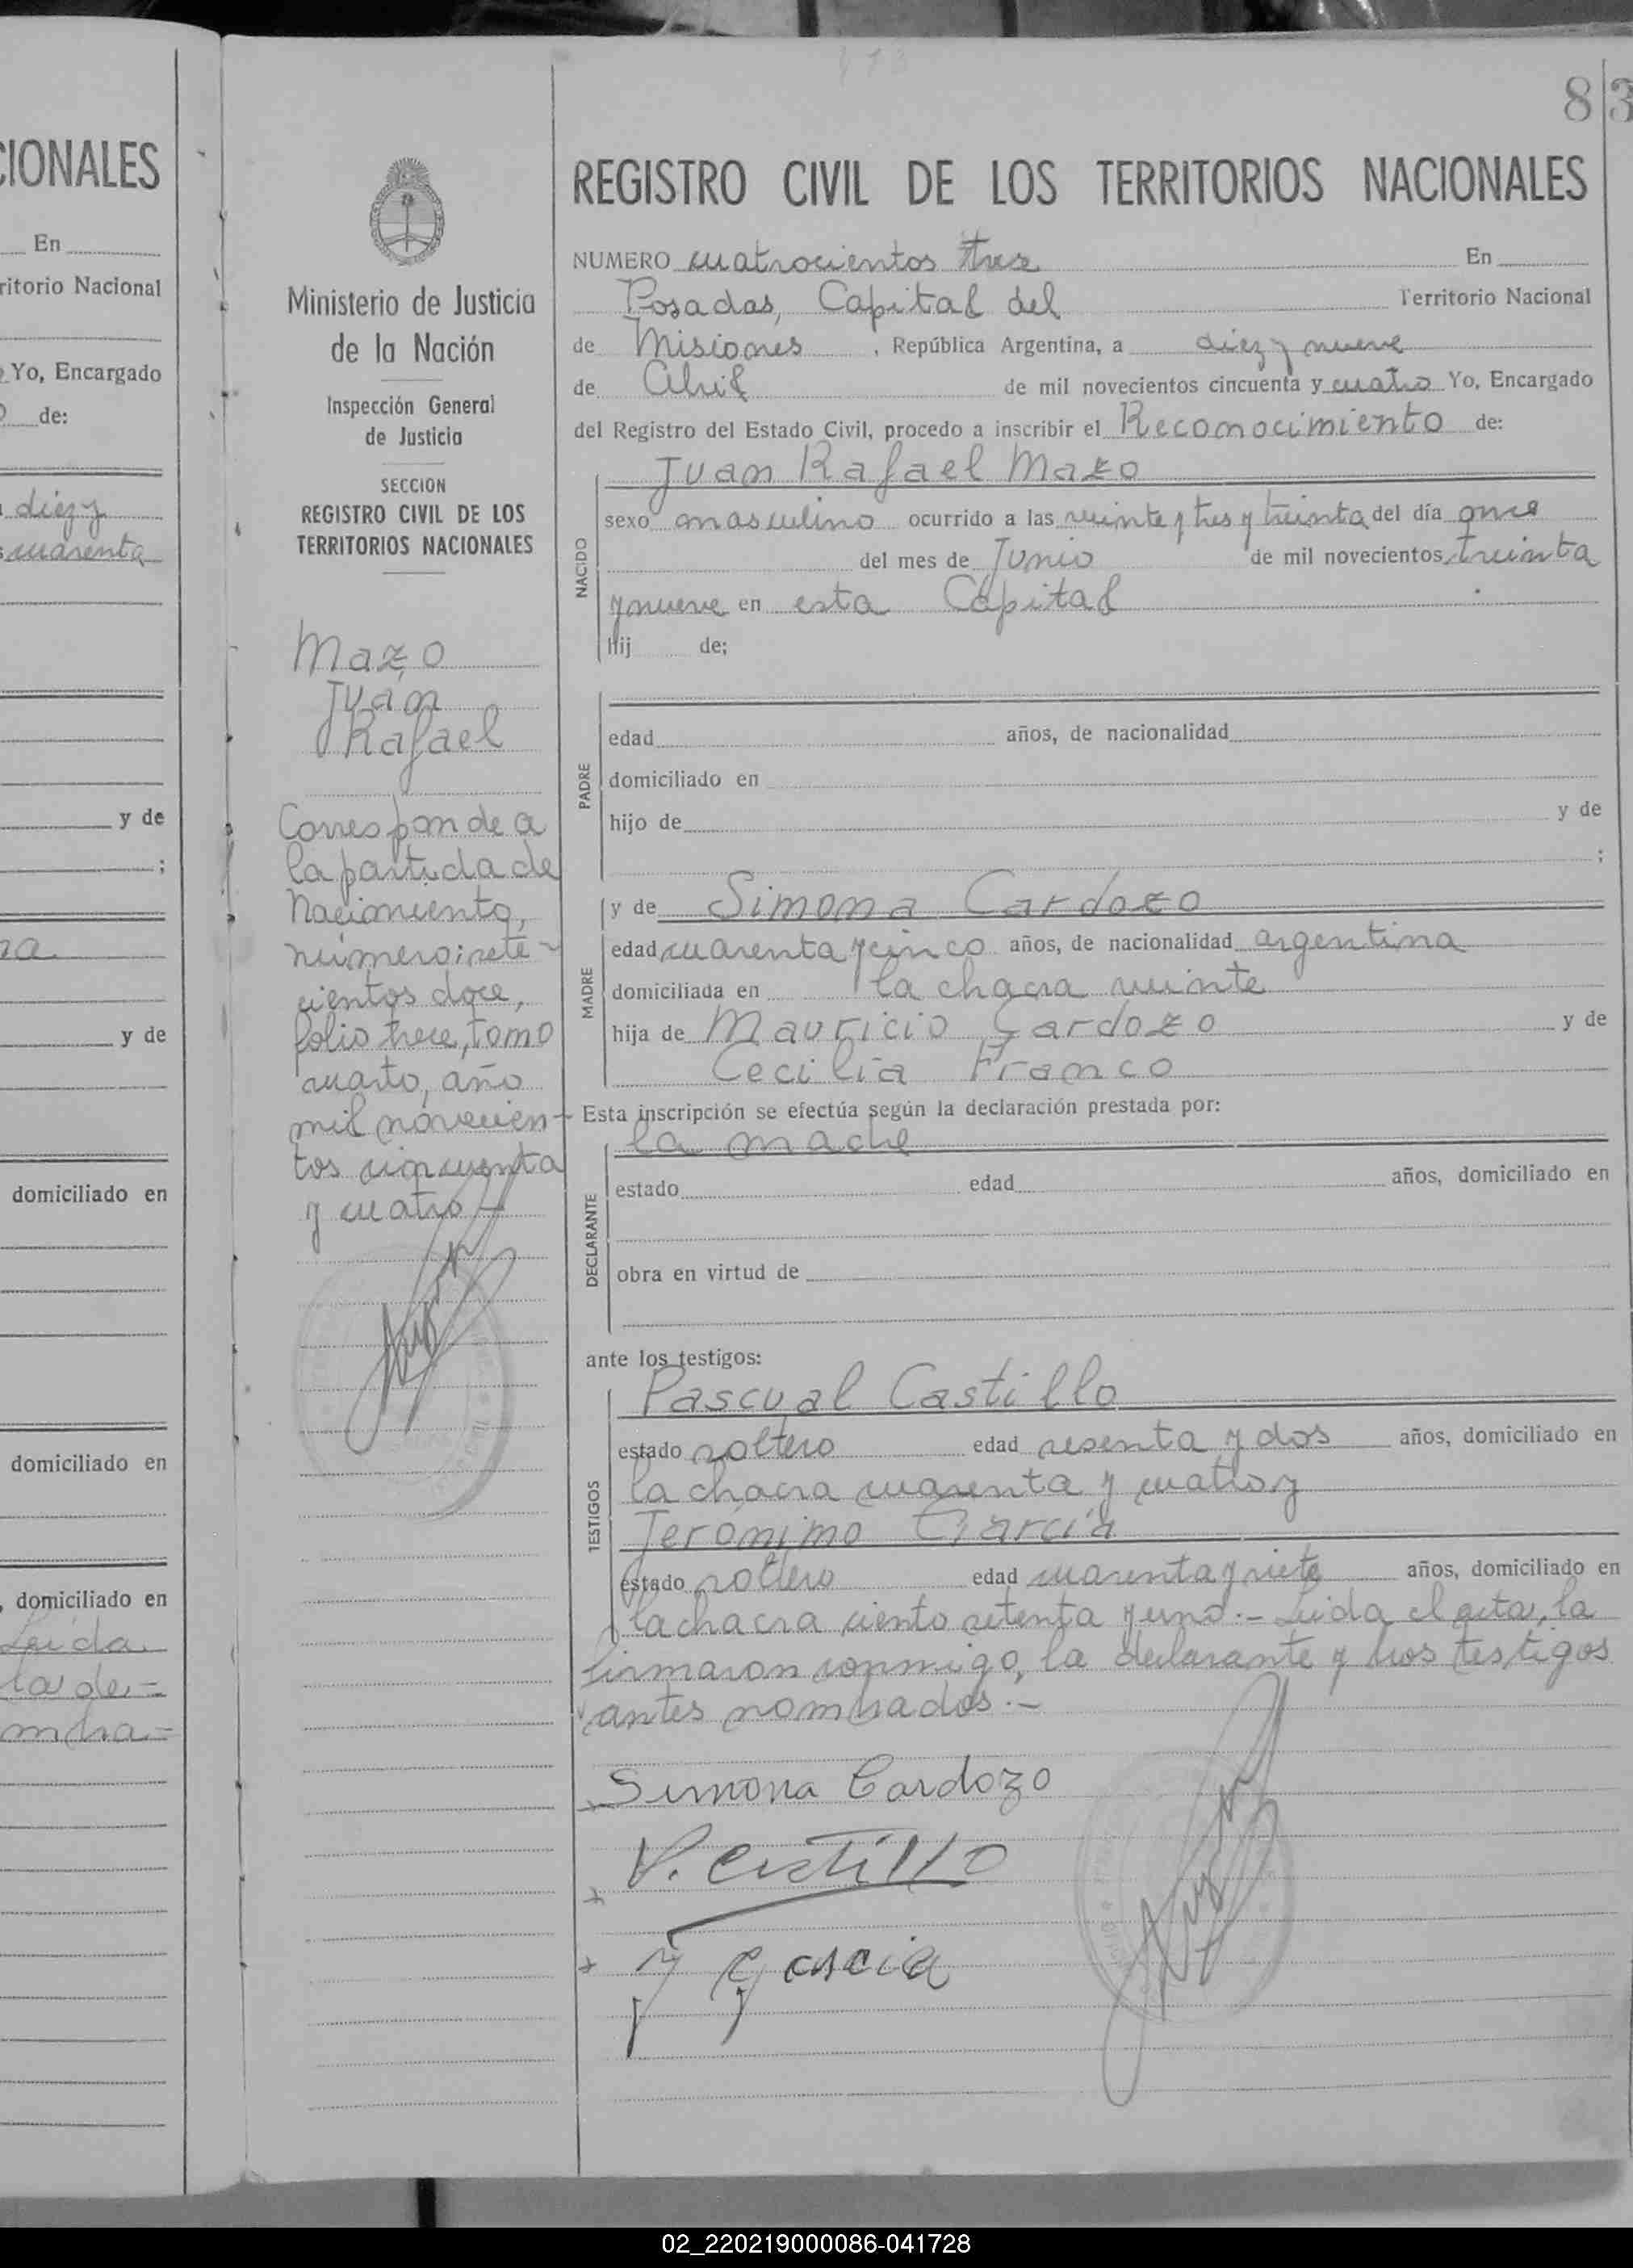 CIONALES
En
ritorio Nacional
Yo, Encargado
de:
diez y
cuarenta
y de
;
na
y de
domiciliado en
domiciliado en
, domiciliado en
Leida
la de-
mbra-
Ministerio de Justicia
de la Nación
Inspección General
de Justicia
SECCION
REGISTRO CIVIL DE LOS
TERRITORIOS NACIONALES
Mazo
Juan
Rafael
Corresponde a
la partida de
Nacimiento,
número: sete-
cientos doce,
folio trece, tomo
cuarto, año
mil novecien-
tos cincuenta
y cuatro
83
REGISTRO CIVIL DE LOS TERRITORIOS NACIONALES
NUMERO cuatrocientos tres En
Posadas, Capital del Territorio Nacional
de Misiones , República Argentina, a diez y nueve
de Abril de mil novecientos cincuenta y cuatro Yo, Encargado
del Registro del Estado Civil, procedo a inscribir el Reconocimiento de:
NACIDO
Juan Rafael Mazo
sexo masculino ocurrido a las veinte y tres y treinta del día once
del mes de Junio de mil novecientos treinta
y nueve en esta Capital
Hij de;
PADRE
edad años, de nacionalidad
domiciliado en
hijo de y de
;
MADRE
y de Simona Cardozo
edad cuarenta y cinco años, de nacionalidad argentina
domiciliada en la chacra veinte
hija de Mauricio Cardozo y de
Cecilia Franco
Esta inscripción se efectúa según la declaración prestada por:
DECLARANTE
la madre
estado edad años, domiciliado en
obra en virtud de
ante los testigos:
TESTIGOS
Pascual Castillo
estado soltero edad sesenta y dos años, domiciliado en
la chacra cuarenta y cuatro y
Jerónimo García
estado soltero edad cuarenta y siete años, domiciliado en
la chacra ciento setenta y uno.- Leida el acta, la
firmaron conmigo, la declarante y los testigos
antes nombrados.-
Simona Cardozo
P. Castillo
J Garcia
02_220219000086-041728